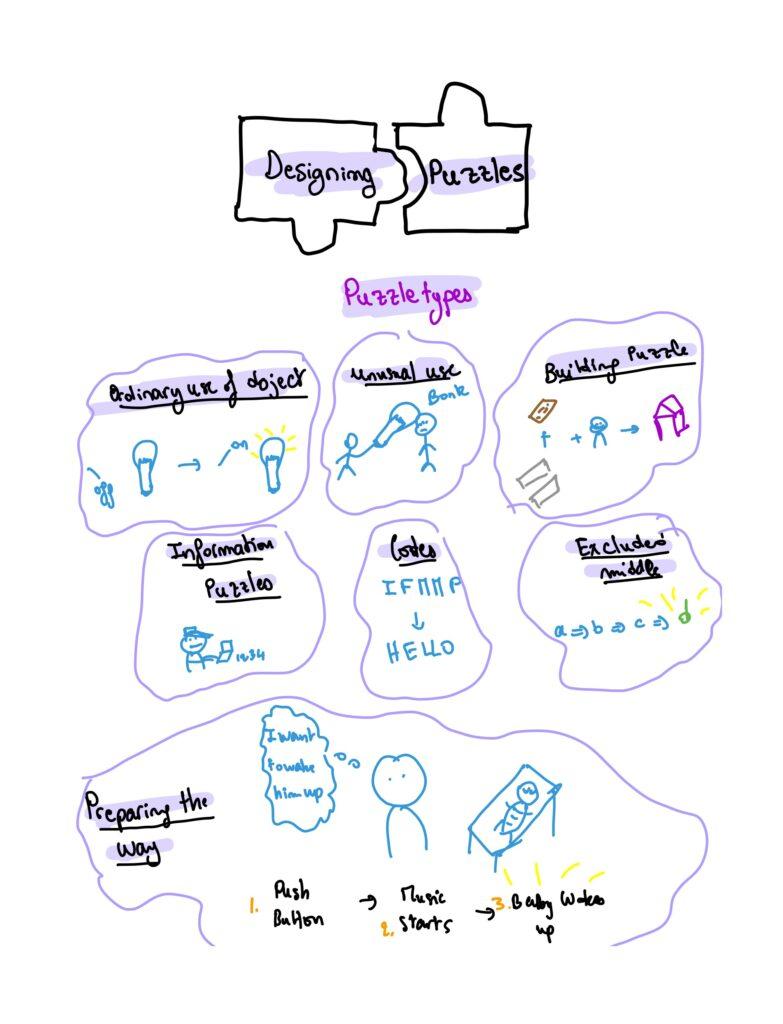 Designing Puzzles
Puzzle types
Ordinary use of object
off
on
Unusual use
Bonk
Building Puzzle
+
+
→
Information
Puzzles
1234
Codes
IFMMP
↓
HELLO
Excluded
middle
a => b => c =>
Preparing the
way
I want
to wake
him up
1. Push
Button
→
Music
2. Starts
→
3. Baby wakes
up